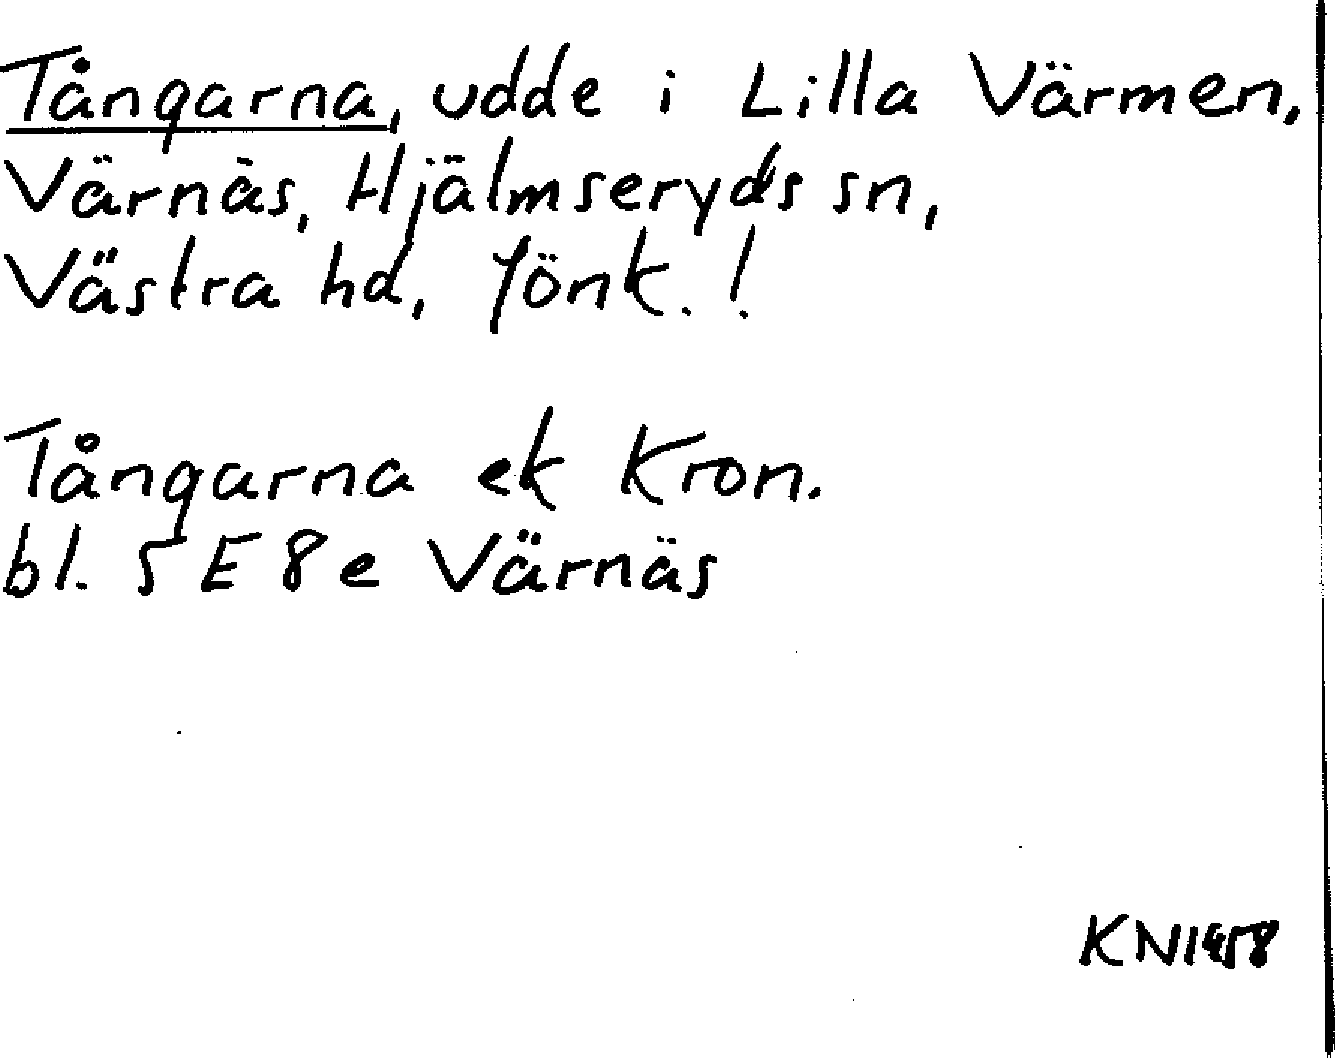 Tångarna, udde i Lilla Värmen,
Värnäs, Hjälmseryds sn,
Västra hd, Jönk. !
Tångarna ek Kron.
bl. 5E8e Värnäs
KN1958